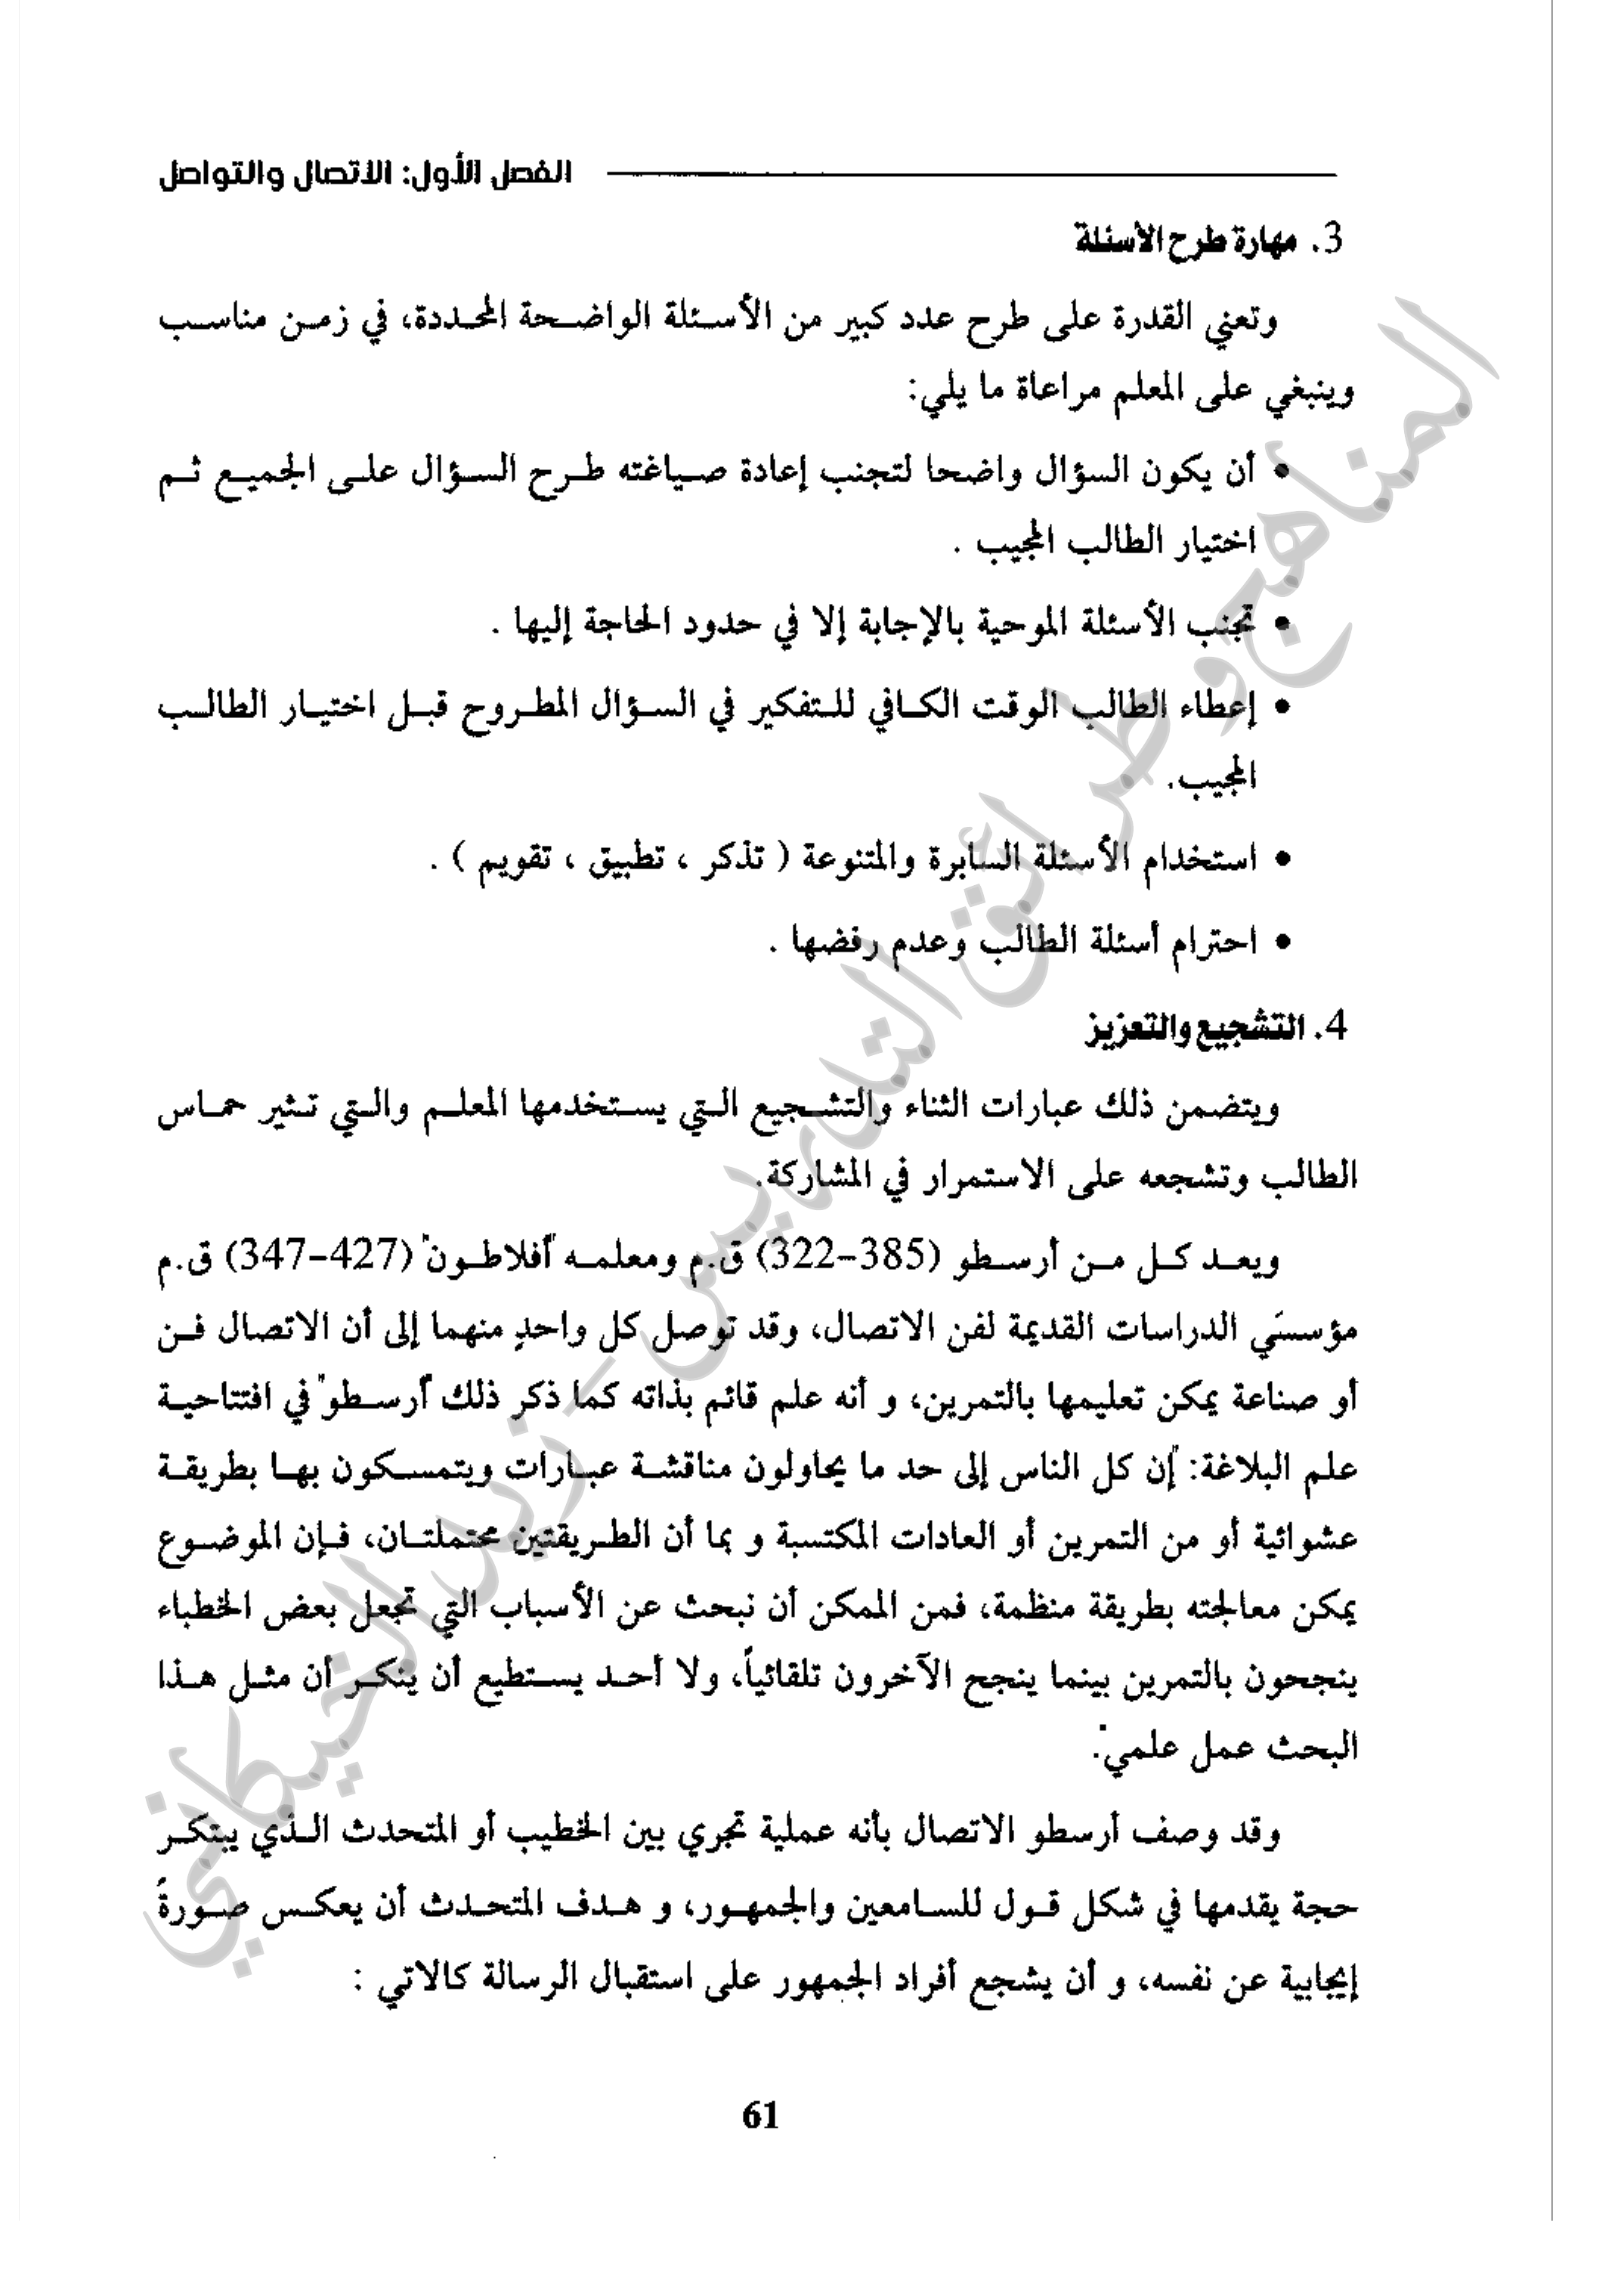 الفصل الأول: الاتصال والتواصل
3. مهارة طرح الاسئلة
وتعني القدرة على طرح عدد كبير من الأسئلة الواضحة المحددة، في زمن مناسب
وينبغي على المعلم مراعاة ما يلي:
• أن يكون السؤال واضحا لتجنب إعادة صياغته طرح السؤال على الجميع ثم
اختيار الطالب المجيب .
• تجنب الأسئلة الموحية بالإجابة إلا في حدود الحاجة إليها .
• إعطاء الطالب الوقت الكافي للتفكير في السؤال المطروح قبل اختيار الطالب
المجيب.
• استخدام الأسئلة السابرة والمتنوعة ( تذكر ، تطبيق ، تقويم ) .
• احترام أسئلة الطالب وعدم رفضها .
4. التشجيع والتعزيز
ويتضمن ذلك عبارات الثناء والتشجيع التي يستخدمها المعلم والتي تثير حماس
الطالب وتشجعه على الاستمرار في المشاركة.
ويعد كل من أرسطو (385-322) ق.م ومعلمه "أفلاطون" (427-347) ق.م
مؤسسَي الدراسات القديمة لفن الاتصال، وقد توصل كل واحدٍ منهما إلى أن الاتصال فن
أو صناعة يمكن تعليمها بالتمرين، و أنه علم قائم بذاته كما ذكر ذلك "أرسطو" في افتتاحية
علم البلاغة: "إن كل الناس إلى حد ما يحاولون مناقشة عبارات ويتمسكون بها بطريقة
عشوائية أو من التمرين أو العادات المكتسبة و بما أن الطريقتين محتملتان، فإن الموضوع
يمكن معالجته بطريقة منظمة، فمن الممكن أن نبحث عن الأسباب التي تجعل بعض الخطباء
ينجحون بالتمرين بينما ينجح الآخرون تلقائياً، ولا أحد يستطيع أن ينكر أن مثل هذا
البحث عمل علمي".
وقد وصف أرسطو الاتصال بأنه عملية تجري بين الخطيب أو المتحدث الذي يبتكر
حجة يقدمها في شكل قول للسامعين والجمهور، و هدف المتحدث أن يعكس صورةً
إيجابية عن نفسه، و أن يشجع أفراد الجمهور على استقبال الرسالة كالاتي :
61
المناهج وطرائق التدريس - زيد الخيكاني